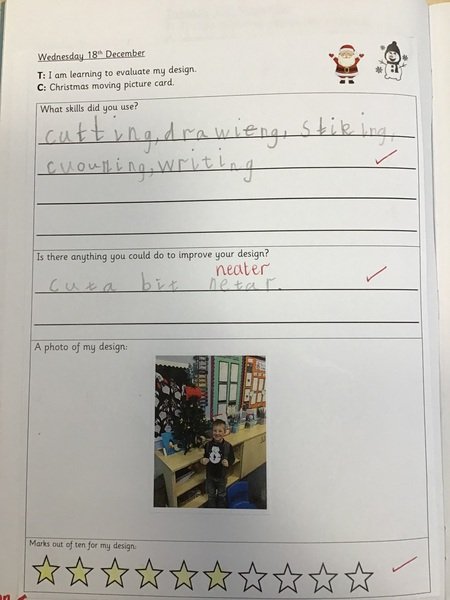 Wednesday 18th December
T: I am learning to evaluate my design.
C: Christmas moving picture card.
What skills did you use?
cutting, drawieng, stiking,
cuouning, writing
Is there anything you could do to improve your design?
neater
cut a bit netar.
A photo of my design:
Marks out of ten for my design: